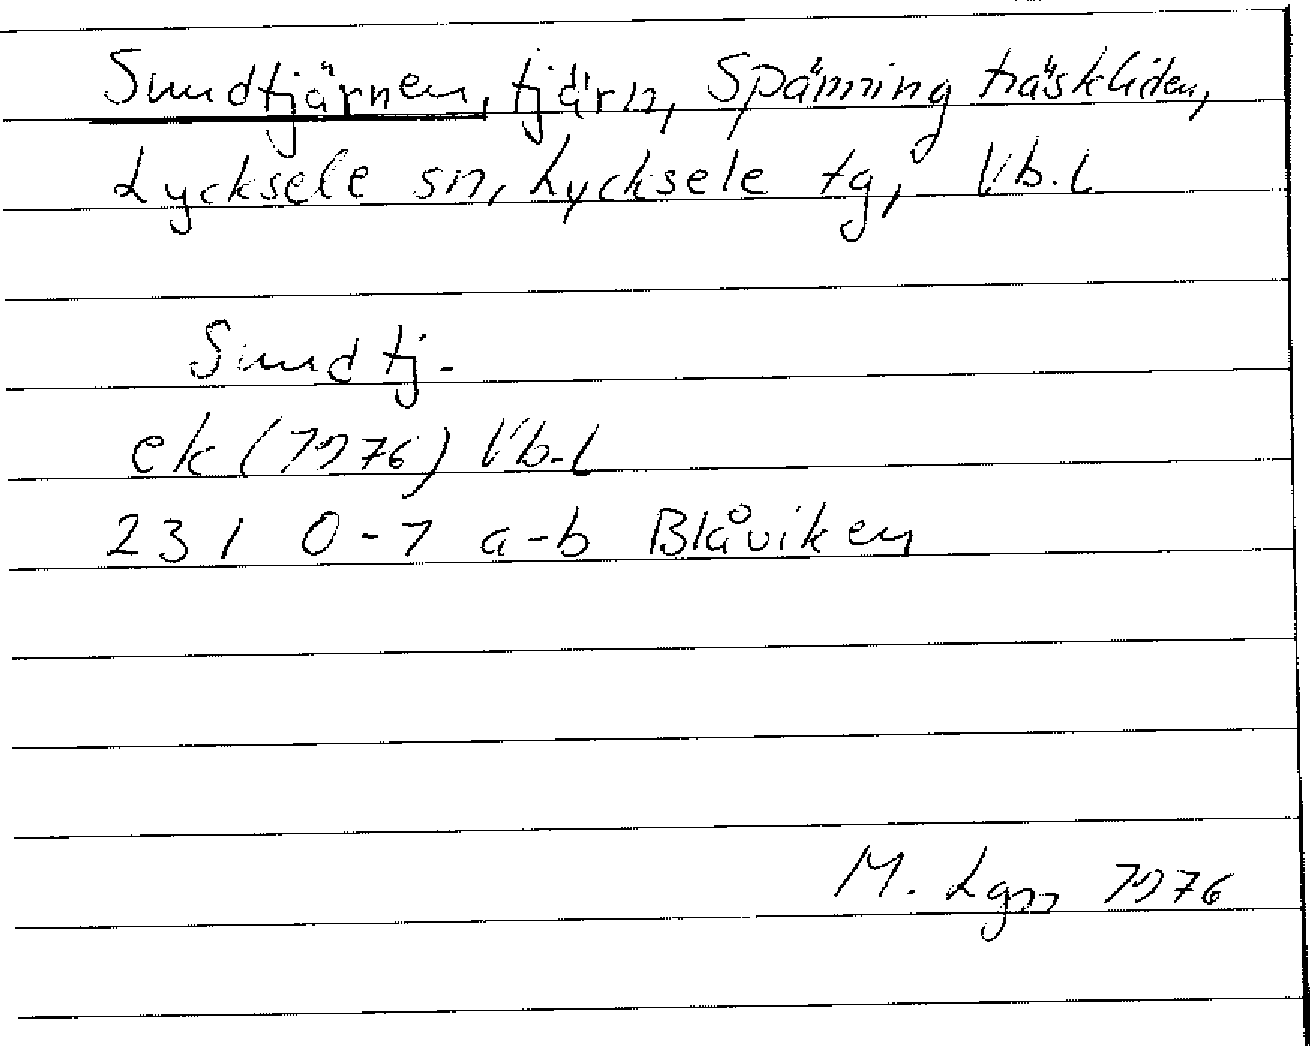 Sundtjärnen, tjärn, Spänningträskliden,
Lycksele sn, Lycksele tg, Vb.l
Sundtj.
ek (1976) Vb.l
23 I 0-1 a-b Blåviken
M. Lgn 1976